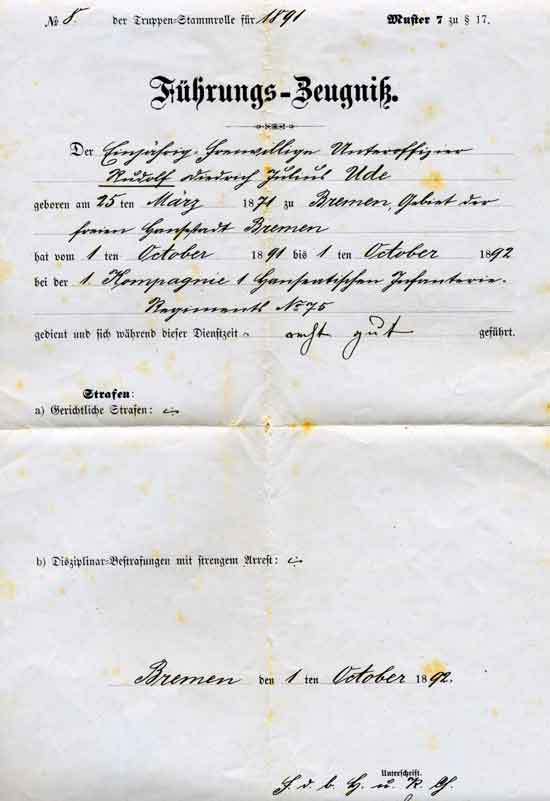 № 8. der Truppen=Stammrolle für 1891 Muster 7 zu § 17.
Führungs-Zeugniß.
Der Einjährig-Freiwillige Unteroffizier
Rudolf Diedrich Julius Ude
geboren am 25 ten März 1871 zu Bremen, Gebiet der
freien Hansestadt Bremen
hat vom 1 ten October 1891 bis 1 ten October 1892
bei der 1. Kompagnie 1 Hanseatischen Infanterie-
Regiments No 75
gedient und sich während dieser Dienstzeit recht gut geführt.
Strafen:
a) Gerichtliche Strafen:
b) Disziplinar=Bestrafungen mit strengem Arrest:
Bremen den 1 ten October 1892.
Unterschrift.